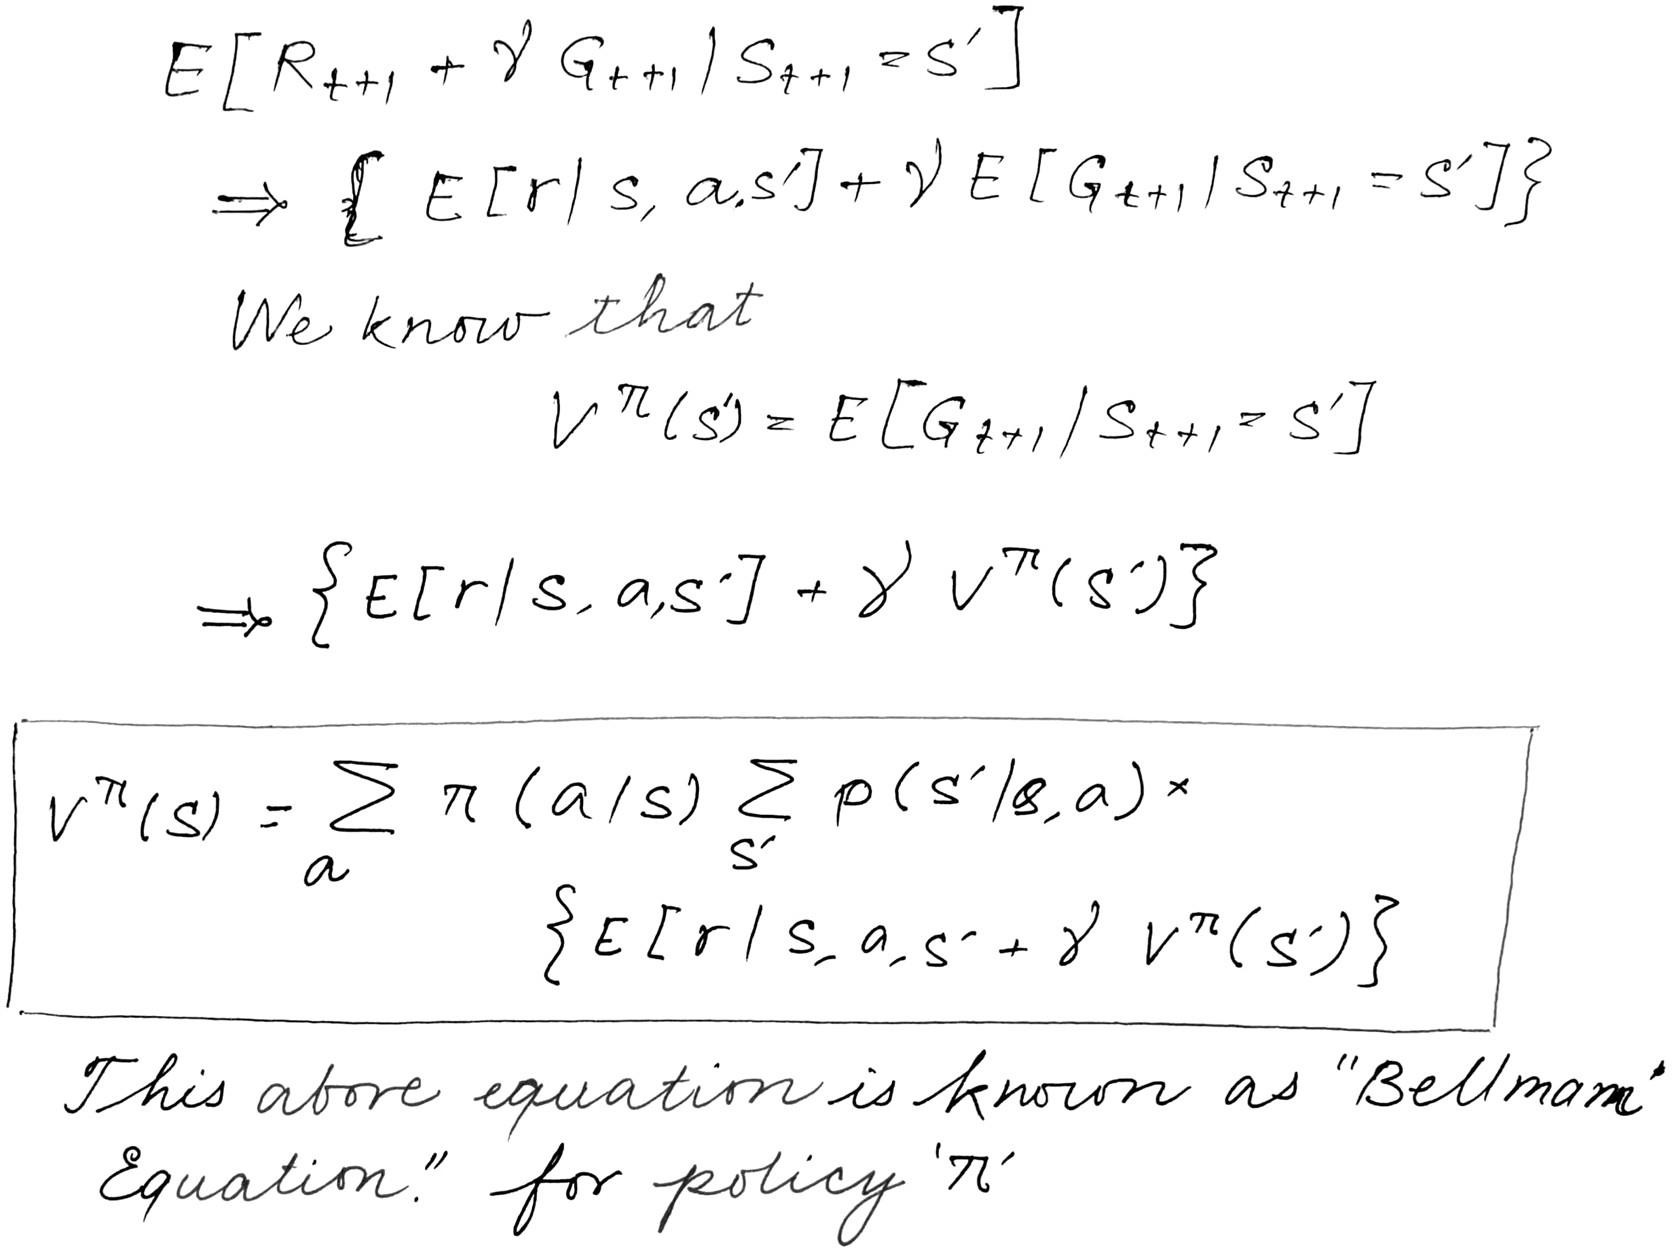 E[R_{t+1} + γ G_{t+1} | S_{t+1} = s′]
⇒ { E[r | s, a, s′] + γ E[G_{t+1} | S_{t+1} = s′]}
We know that
V^π(s′) = E[G_{t+1} | S_{t+1} = s′]
⇒ {E[r | s, a, s′] + γ V^π(s′)}
V^π(s) = ∑_a π(a/s) ∑_{s′} p(s′/s, a) ×
{E[r | s, a, s′ + γ V^π(s′)}
This above equation is known as "Bellmam"
Equation." for policy 'π'